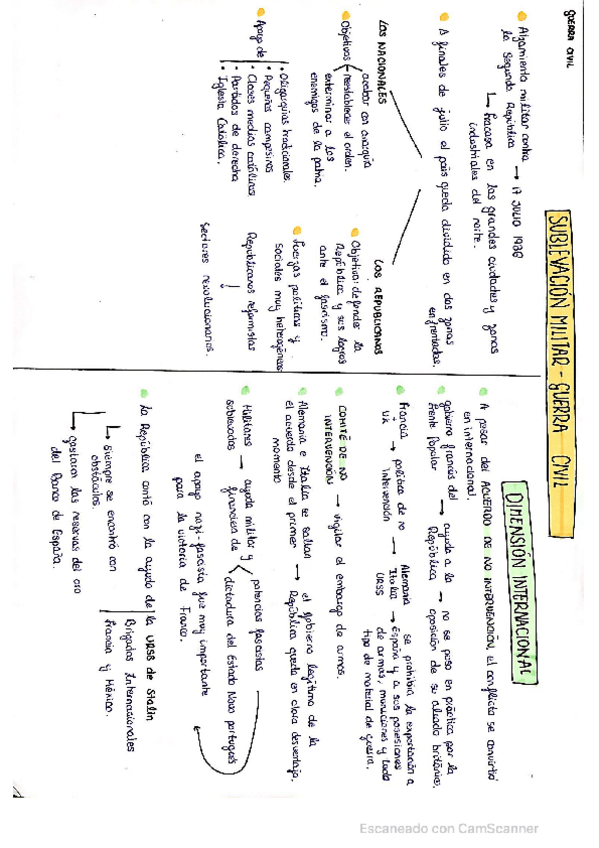 GUERRA CIVIL
SUBLEVACIÓN MILITAR - GUERRA CIVIL
Alzamiento militar contra → 17 JULIO 1936
la Segunda República
↳ fracasa en las grandes ciudades y zonas
industriales del norte.
A finales de julio el país queda dividido en dos zonas
enfrentadas.
LOS NACIONALES
Objetivos
acabar con anarquía
reestablecer el orden.
exterminar a los
enemigos de la patria.
Apoyo de:
• Oligarquías tradicionales
• Pequeños campesinos
• Clases medias católicas
• Partidos de derecha
• Iglesia Católica.
LOS REPUBLICANOS
Objetivo: defender la
República y sus logros
ante el fascismo.
Fuerzas políticas y
sociales muy heterogéneas
↓
Republicanos reformistas
sectores revolucionarios.
DIMENSIÓN INTERNACIONAL
A pesar del ACUERDO DE NO INTERVENCIÓN, el conflicto se convirtió
en internacional.
gobierno francés del → ayuda a la → no se puso en práctica por la
Frente Popular República oposición de su aliado británico.
Francia → política de no → Alemania
UK intervención Italia
URSS
se prohibía la exportación a
→ España y a sus posesiones
de armas, municiones y todo
tipo de material de guerra.
COMITÉ DE NO → vigilar el embargo de armas.
INTERVENCIÓN
Alemania e Italia se saltan → el gobierno legítimo de la
el acuerdo desde el primer República queda en clara desventaja.
momento
Militares → ayuda militar y
sublevados financiera de
potencias fascistas
dictadura del Estado Novo portugués
el apoyo nazi-fascista fue muy importante
para la victoria de Franco.
La República contó con la ayuda de la URSS de Stalin
Brigadas Internacionales
Francia y México.
↳ siempre se encontró con
obstáculos.
↳ gastaron las reservas del oro
del Banco de España.
Escaneado con CamScanner